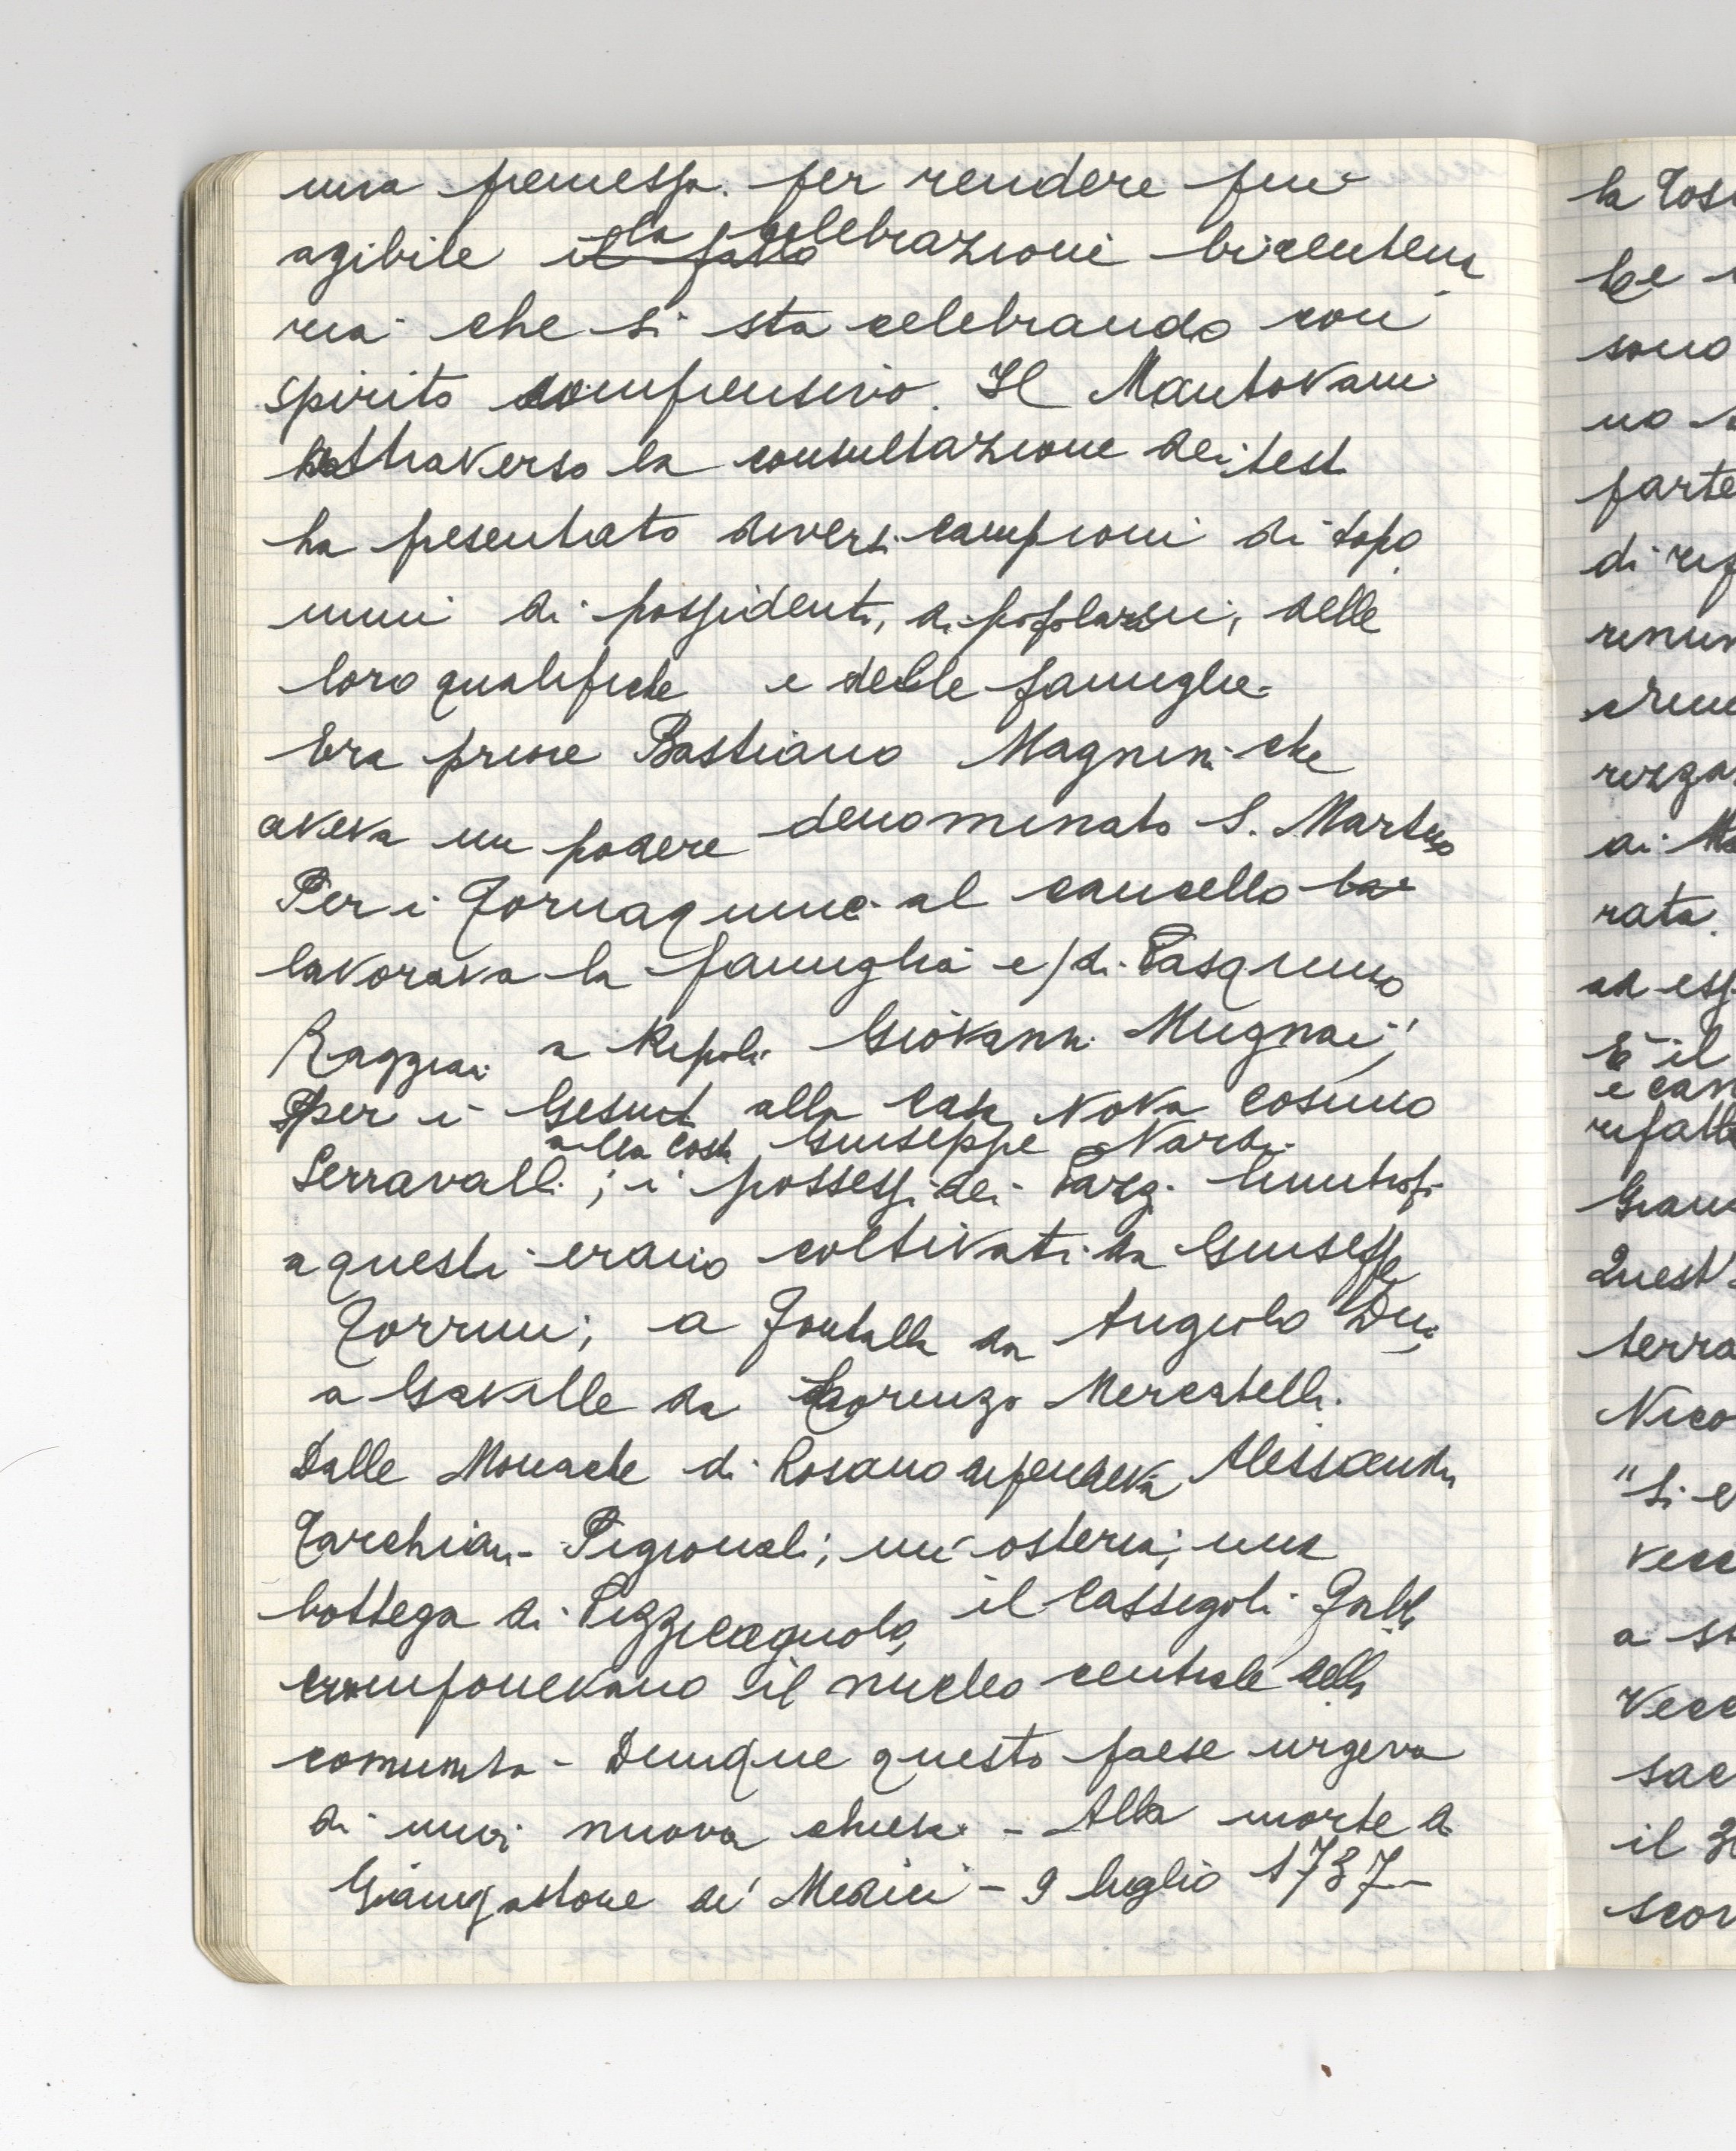 una premessa. per rendere più
agibile il fatto la celebrazione bicentena
ria che si sta celebrando con
spirito comprensivo. Il Mantovani
attraverso la consultazione dei testi
ha presentato diversi campioni di topo
nimi di possidenti, di popolani, delle
loro qualifiche e delle famiglie.
Era priore Bastiano Magnini che
aveva un podere denominato S. Martino
Per i Tornaquinci al cancello
lavorava la famiglia e/di Pasquino
Raggiai a Ripoli Giovanni Mugnai;
per i Gesuiti alla Casa Nova Cosimo
alla Costa Giuseppe Nardi
Serravalli; i possessi dei Pazzi limitrofi
a questi erano coltivati da Giuseppe
Torrini; a Fontalla da Angiolo
a Gaville da Lorenzo Mercatelli.
Dalle Monache di Rosano dipendeva Alessandro
Tarchiani - Pigionali; un'osteria; una
bottega di Pizzicagnolo, il Cassigoli
componevano il nucleo centrale della
comunità - Dunque questo paese urgeva
di una nuova chiesa - Alla morte di
Giangastone de' Medici - 9 luglio 1737 -
la
sono
no
parte
di
ai
rata.
È il
Quest'
terra
"Si
a
il